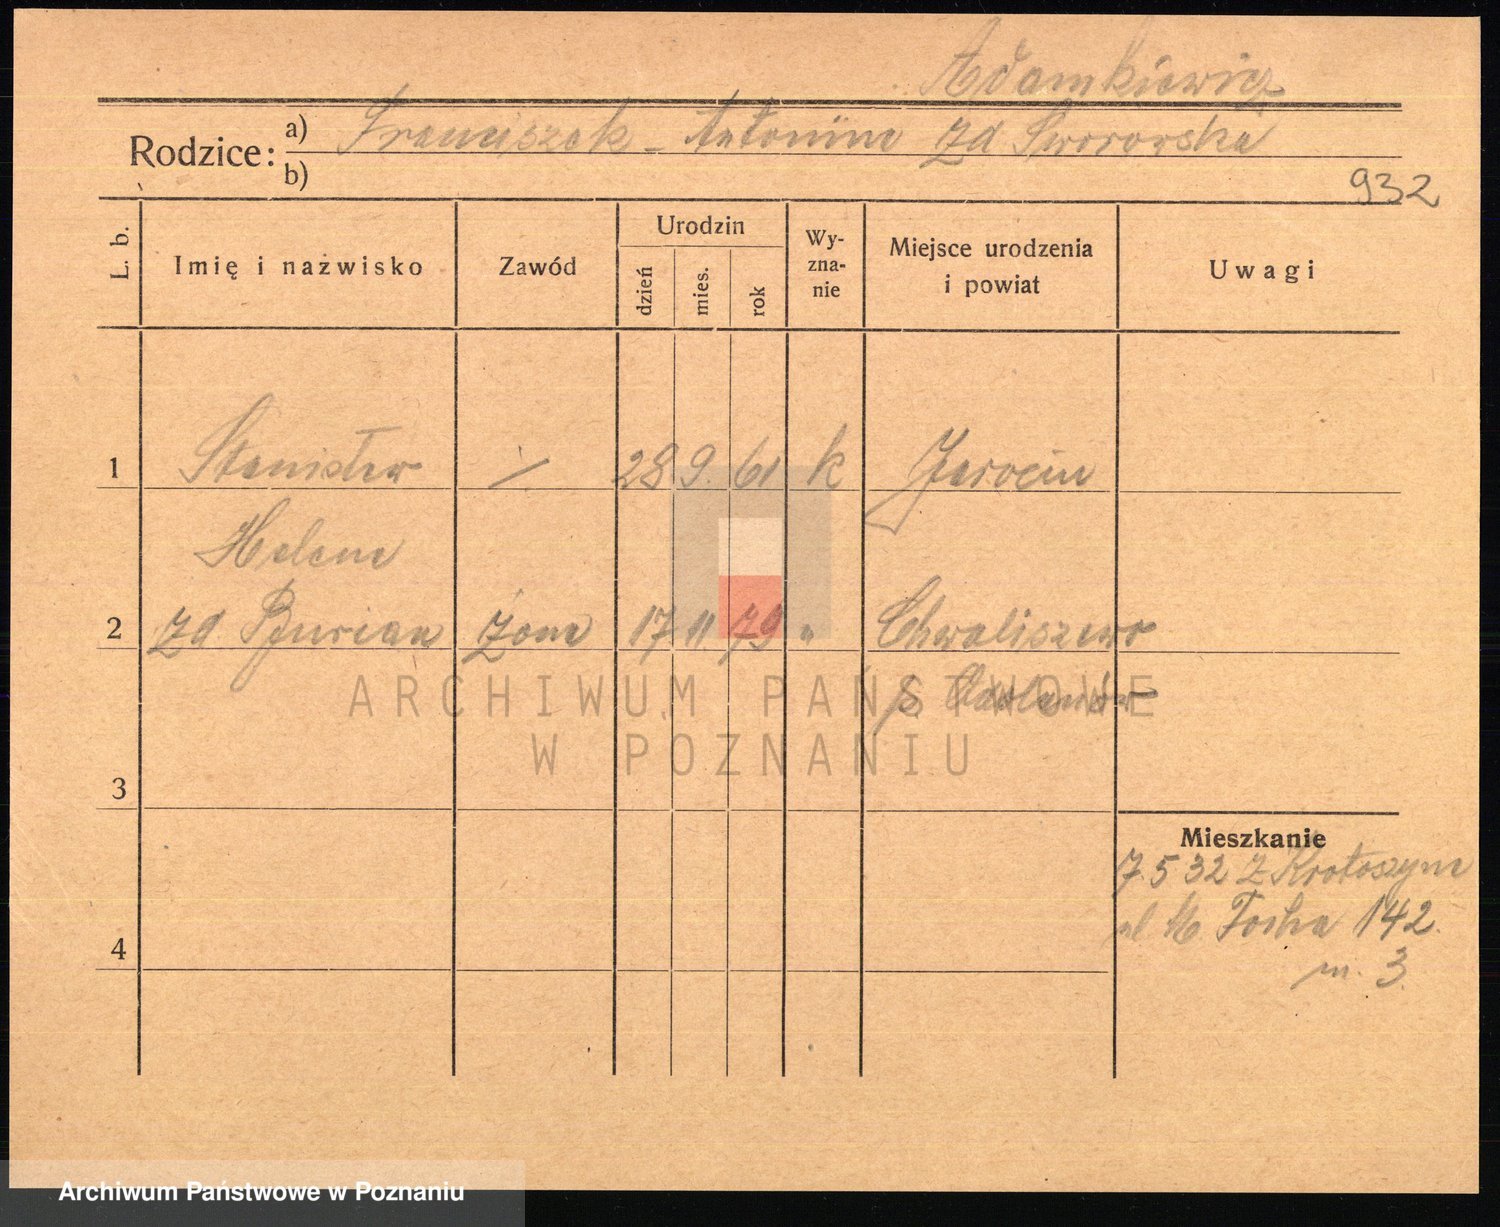 Adamkiewicz
Rodzice: a) Franciszek - Antonina zd Sworowska
b)
932
L. b.
Imię i nazwisko
Zawód
Urodzin
dzień
mies.
rok
Wy-
zna-
nie
Miejsce urodzenia
i powiat
Uwagi
1 Stanisław 28 9. 61 k Jarocin
Helena
2 zd Burian żona 17 11. 79 " Chwaliszewo
p. Odolanów
3
Mieszkanie
7.5 32 z Krotoszyna
ul M. Focha 142.
m. 3.
4
ARCHIWUM PAŃSTWOWE
W POZNANIU
Archiwum Państwowe w Poznaniu